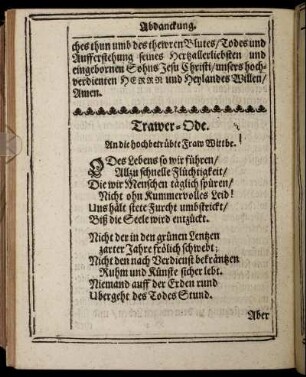 Abdanckung.
ches thun umb des thewren Blutes/Todes und
Aufferstehung seines Hertzallerliebsten und
eingebornen Sohns Jesu Christi/unsers hoch-
verdienten HERRN und Heylandes Willen/
Amen.
Trawer-Ode.
An die hochbetrübte Fraw Wittbe.
O Des Lebens so wir führen/
Allzu schnelle Flüchtigkeit/
Die wir Menschen täglich spüren/
Nicht ohn Kummervolles Leid!
Uns hält stete Furcht umbstrickt/
Biß die Seele wird entzückt.
Nicht der in den grünen Lentzen
zarter Jahre frölich schwebt;
Nicht den nach Verdienst bekräntzen
Ruhm und Künste sicher lebt.
Niemand auff der Erden rund
Ubergeht des Todes Stund.
Aber